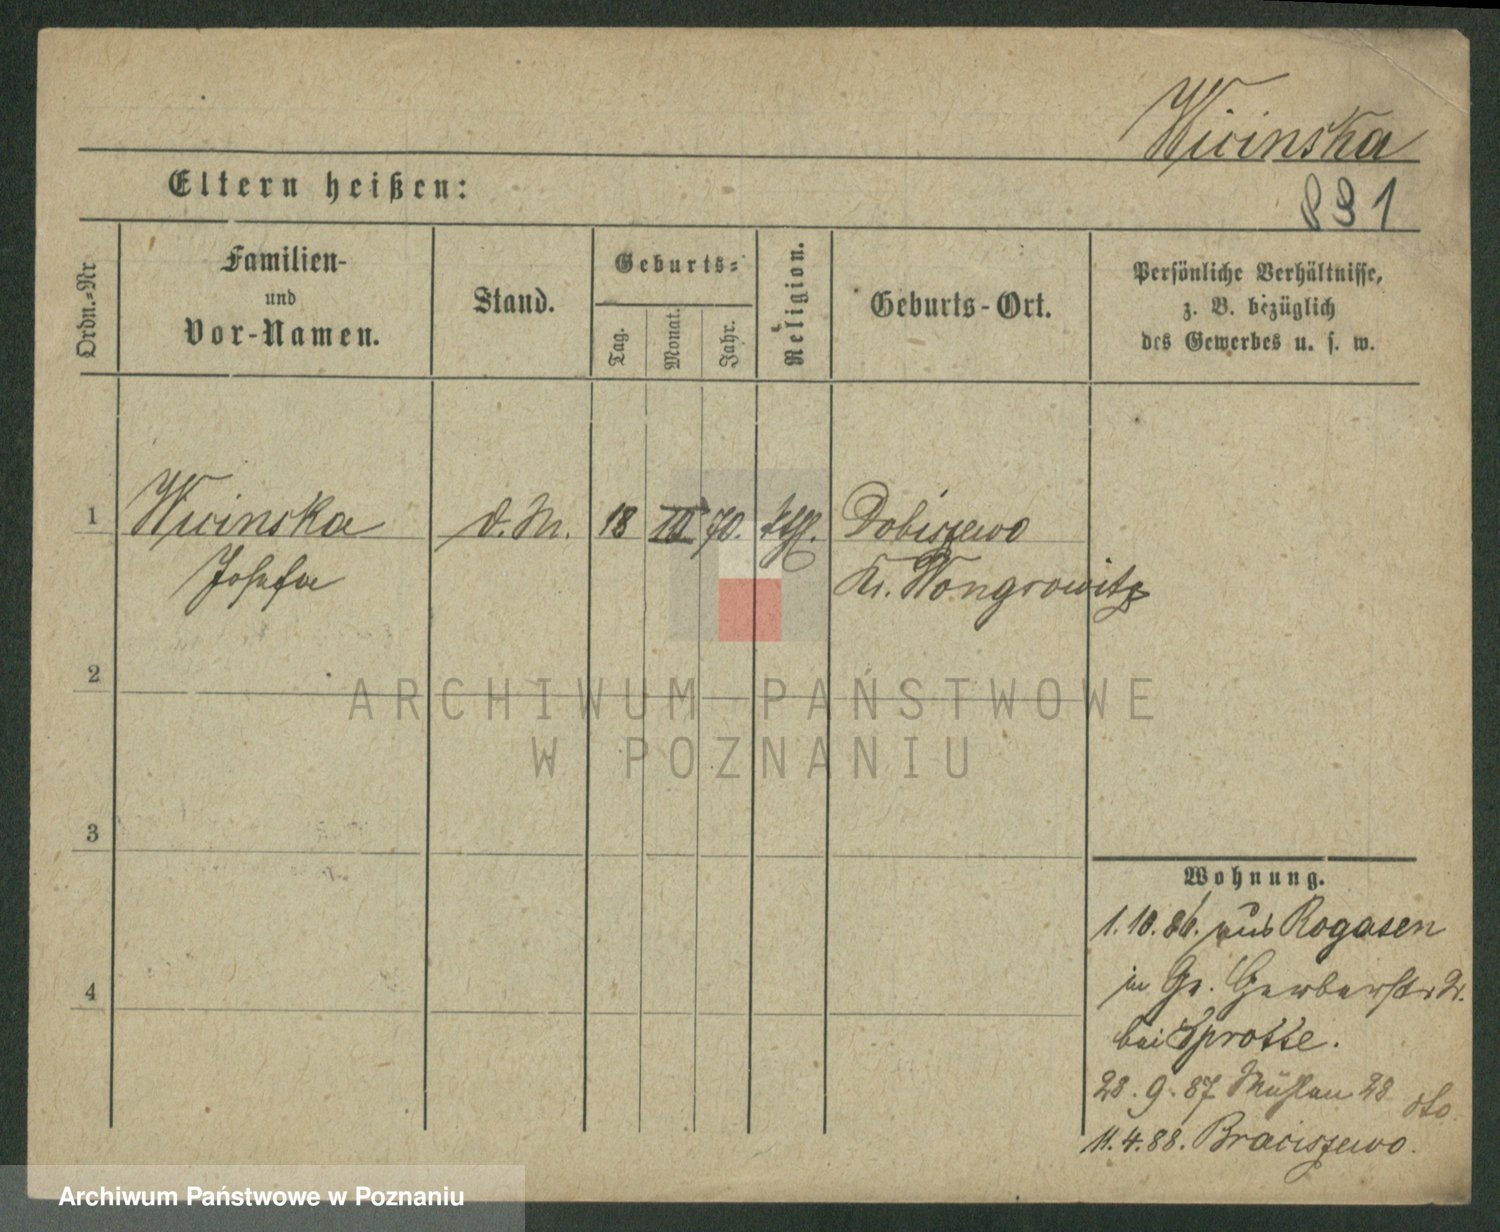 Wicinska
891
Eltern heißen:
Ordn.=Nr
Familien-
und
Vor-Namen.
Stand.
Geburts=
Tag.
Monat.
Jahr.
Religion.
Geburts-Ort.
Persönliche Verhältnisse,
z. B. bezüglich
des Gewerbes u. s. w.
1 Wicinska d. M. 18 III 70. kth. Dobiszewo
Josefa Kr. Wongrowitz
2
ARCHIWUM PAŃSTWOWE
W POZNANIU
3
Wohnung.
1.10.86. aus Rogasen
in Gr. Gerberstr
4
bei Sprotte.
28.9.87 Mühlen 28 dto.
11.4.88. Braciszewo.
Archiwum Państwowe w Poznaniu